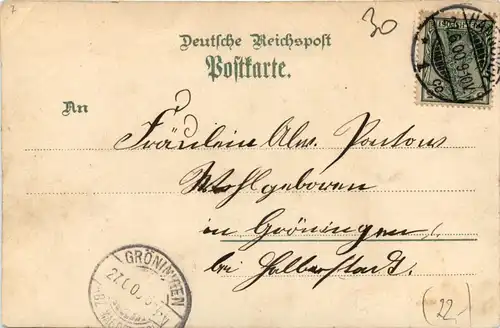 30
Deutsche Reichspost
Postkarte.
An
Fräulein Alw. Pontow
Wohlgeboren
in Gröningen
bei Halberstadt.
GRÖNINGEN
(22-)